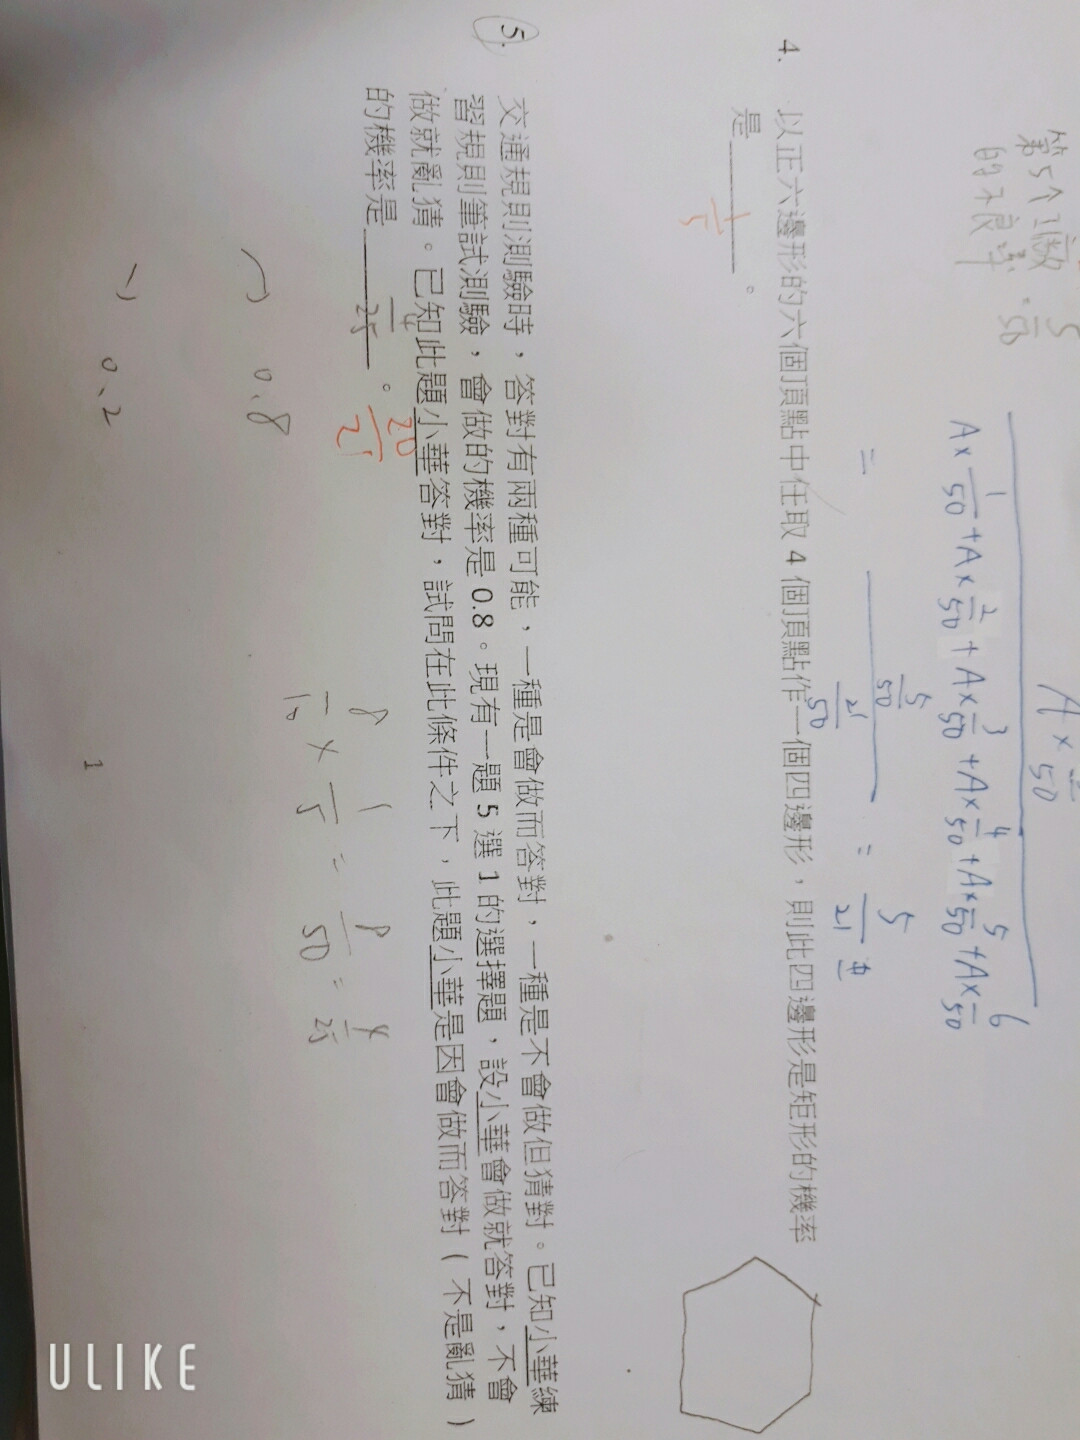 第5个
的不良率
5/50
A×
50
A×1/50+A×2/50+A×3/50+A×4/50+A×5/50+A×6/50
= 5/50
21/50 = 5/21 #
4. 以正六邊形的六個頂點中任取 4 個頂點作一個四邊形,則此四邊形是矩形的機率
是 1/5 。
5. 交通規則測驗時,答對有兩種可能,一種是會做而答對,一種是不會做但猜對。已知小華練
習規則筆試測驗,會做的機率是 0.8。現有一題 5 選 1 的選擇題,設小華會做就答對,不會
做就亂猜。已知此題小華答對,試問在此條件之下,此題小華是因會做而答對(不是亂猜)
的機率是 4/25 。 20/21
0.8
8/10 × 1/5 = 8/50 = 4/25
0.2
1
ULIKE